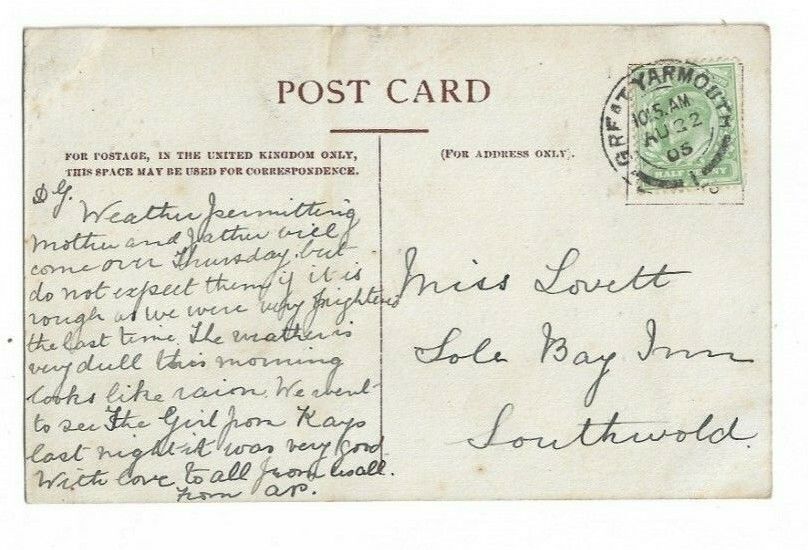 POST CARD
FOR POSTAGE, IN THE UNITED KINGDOM ONLY,
THIS SPACE MAY BE USED FOR CORRESPONDENCE.
(FOR ADDRESS ONLY).
GREAT YARMOUTH
10.5.AM
AU 22
05
1
HALF PENNY
D G.
Weather permitting
mother and father will
come over Thursday. but
do not expect them if it is
rough as we were very frightened
the last time. The weather is
very dull this morning
looks like raion. We went
to see The Girl from Kays
last night it was very good
With love to all from us all.
from
Miss Lovett
Sole Bay Inn
Southwold.